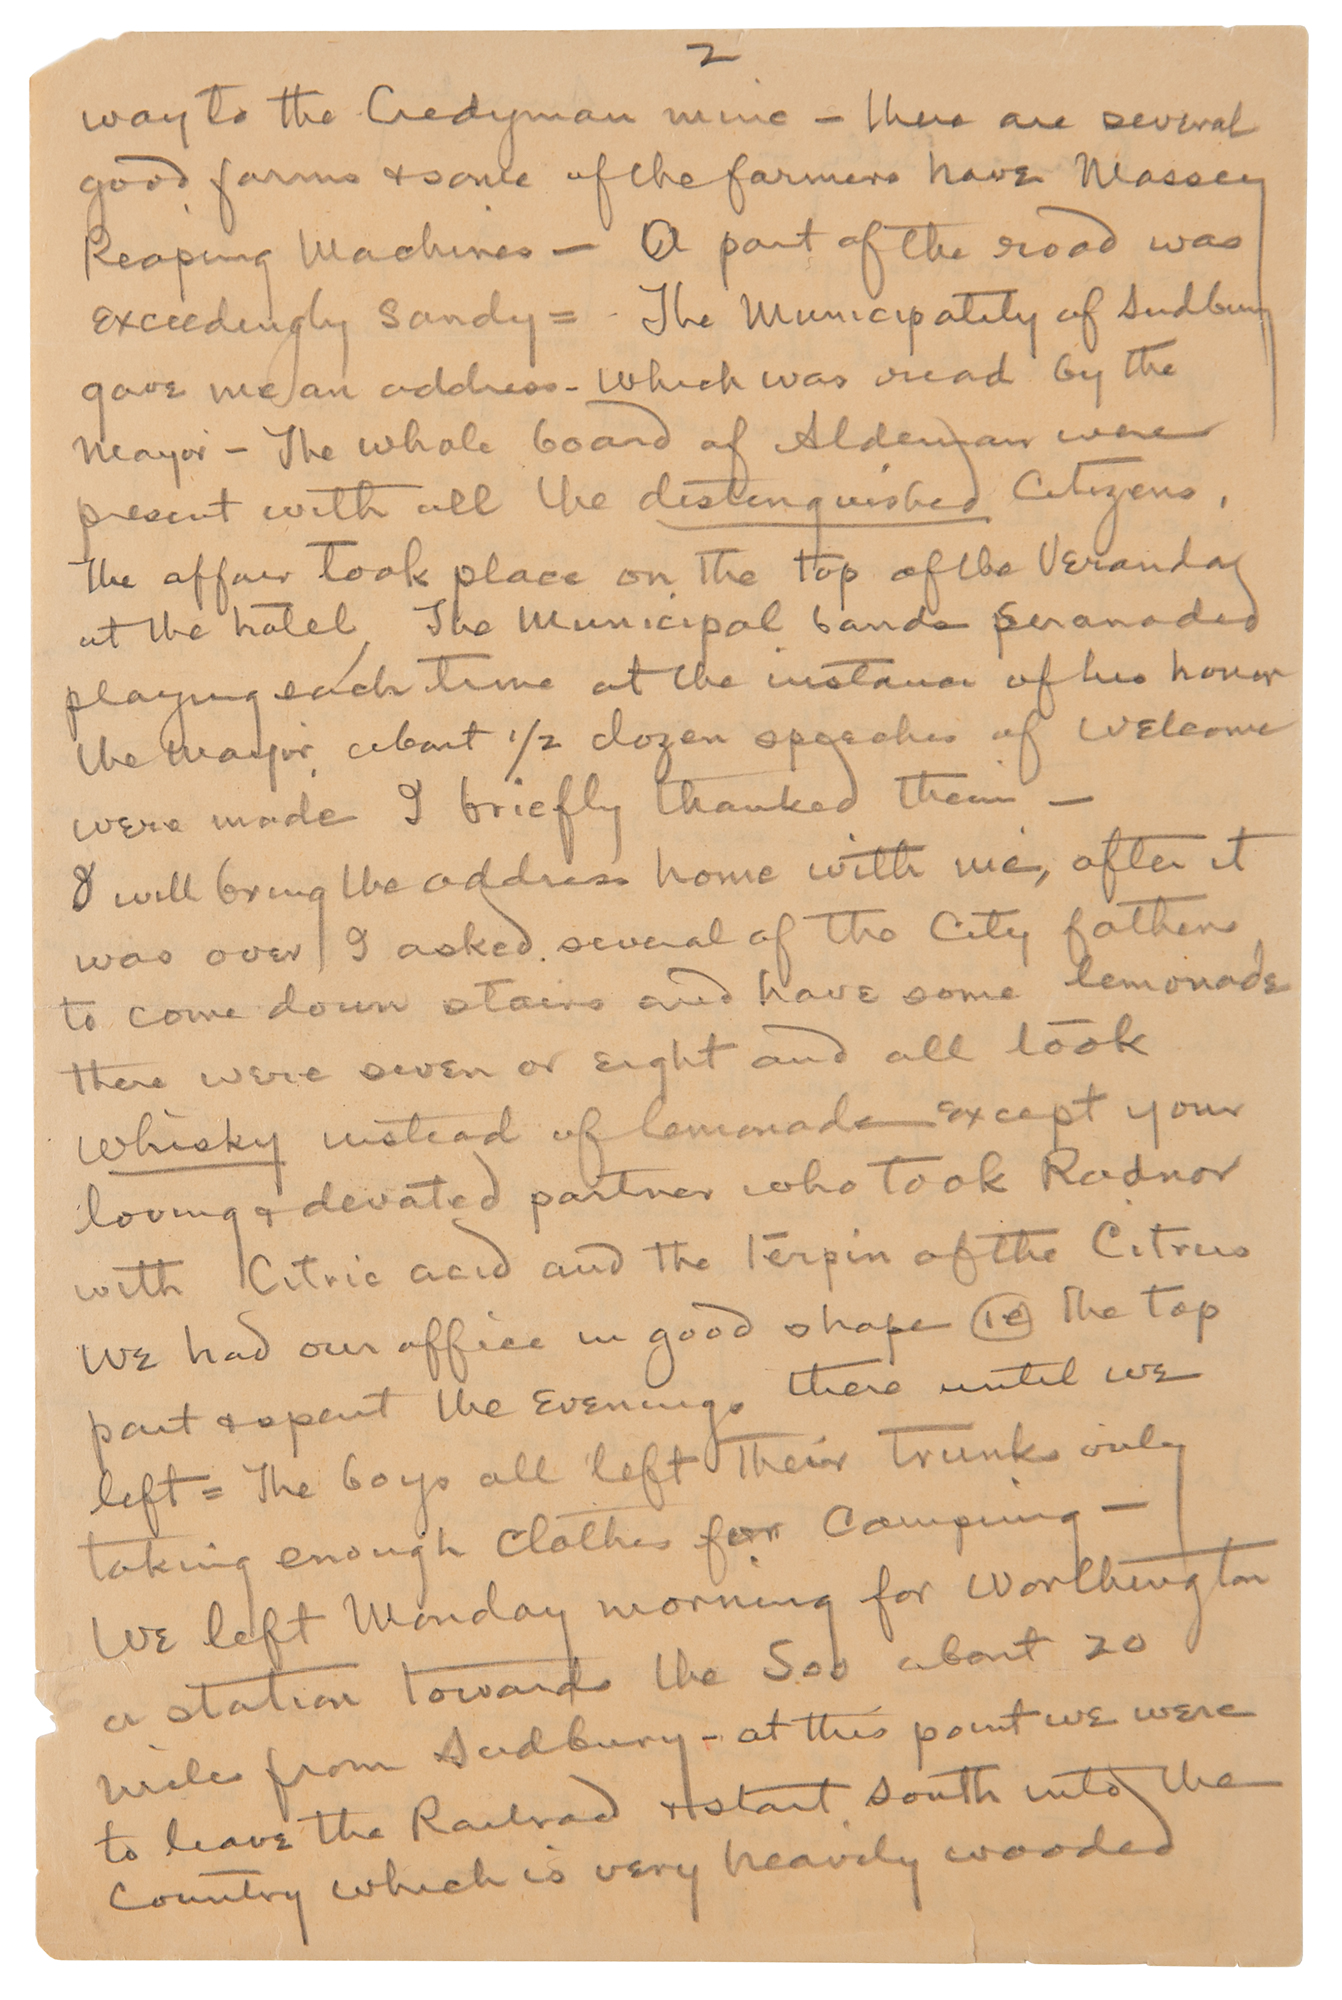 2
way to the Credyman mine – there are several
good farms & some of the farmers have Massey
Reaping Machines – A part of the road was
exceedingly Sandy = The Municipality of Sudbury
gave me an address – which was read by the
Mayor – The whole board of Aldeman were
present with all the distinguished Citizens.
The affair took place on the top of the Veranda
at the hotel, The Municipal bands seranaded
playing each time at the instance of his honor
the mayor, about 1/2 dozen speeches of Welcome
were made I briefly thanked them –
I will bring the address home with me, after it
was over I asked several of the City fathers
to come down stairs and have some lemonade
there were seven or eight and all took
Whisky instead of lemonade except your
loving & devoted partner who took Radnor
with Citric acid and the Terpin of the Citrus
We had our office in good shape ie the top
part & spent the Evenings there until we
left = The boys all left their trunks only
taking enough Clothes for Camping –
We left Monday morning for Worthington
a station towards the Soo about 20
miles from Sudbury – at this point we were
to leave the Railroad & start South into the
Country which is very heavily wooded